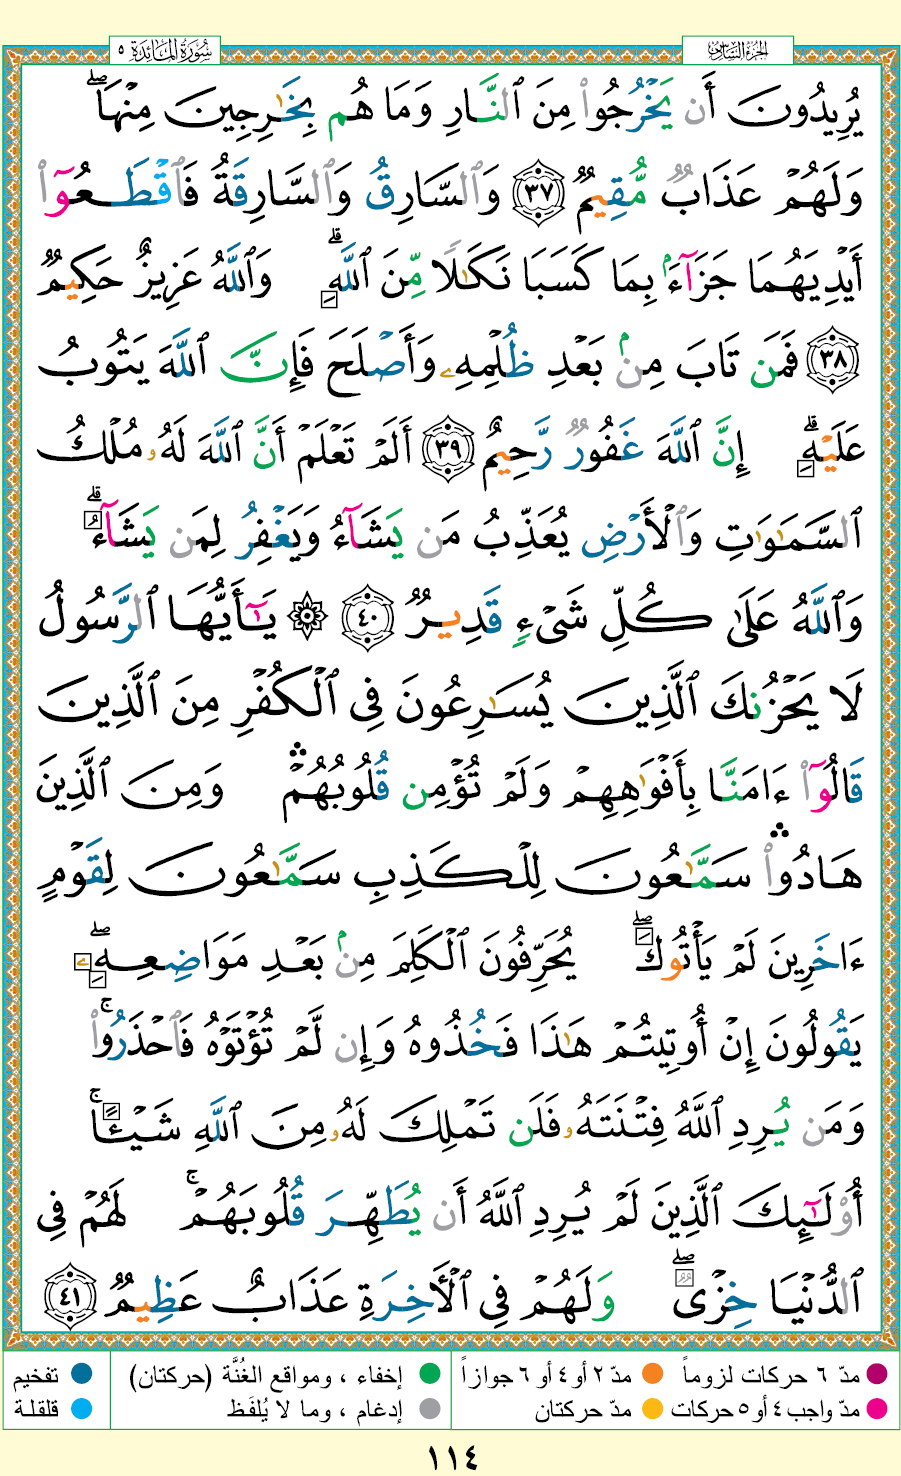 سُورَةُ المَائدَة ٥
الجزء السادس
يُرِيدُونَ أَن يَخْرُجُوا۟ مِنَ ٱلنَّارِ وَمَا هُم بِخَـٰرِجِينَ مِنْهَا ۖ
وَلَهُمْ عَذَابٌ مُّقِيمٌ ٣٧ وَٱلسَّارِقُ وَٱلسَّارِقَةُ فَٱقْطَعُوٓا۟
أَيْدِيَهُمَا جَزَآءًۢ بِمَا كَسَبَا نَكَـٰلًا مِّنَ ٱللَّهِ ۗ وَٱللَّهُ عَزِيزٌ حَكِيمٌ
٣٨ فَمَن تَابَ مِنۢ بَعْدِ ظُلْمِهِۦ وَأَصْلَحَ فَإِنَّ ٱللَّهَ يَتُوبُ
عَلَيْهِ ۗ إِنَّ ٱللَّهَ غَفُورٌ رَّحِيمٌ ٣٩ أَلَمْ تَعْلَمْ أَنَّ ٱللَّهَ لَهُۥ مُلْكُ
ٱلسَّمَـٰوَٰتِ وَٱلْأَرْضِ يُعَذِّبُ مَن يَشَآءُ وَيَغْفِرُ لِمَن يَشَآءُ ۗ
وَٱللَّهُ عَلَىٰ كُلِّ شَىْءٍ قَدِيرٌ ٤٠ ۞ يَـٰٓأَيُّهَا ٱلرَّسُولُ
لَا يَحْزُنكَ ٱلَّذِينَ يُسَـٰرِعُونَ فِى ٱلْكُفْرِ مِنَ ٱلَّذِينَ
قَالُوٓا۟ ءَامَنَّا بِأَفْوَٰهِهِمْ وَلَمْ تُؤْمِن قُلُوبُهُمْ ۛ وَمِنَ ٱلَّذِينَ
هَادُوا۟ ۛ سَمَّـٰعُونَ لِلْكَذِبِ سَمَّـٰعُونَ لِقَوْمٍ
ءَاخَرِينَ لَمْ يَأْتُوكَ ۖ يُحَرِّفُونَ ٱلْكَلِمَ مِنۢ بَعْدِ مَوَاضِعِهِۦ ۖ
يَقُولُونَ إِنْ أُوتِيتُمْ هَـٰذَا فَخُذُوهُ وَإِن لَّمْ تُؤْتَوْهُ فَٱحْذَرُوا۟ ۚ
وَمَن يُرِدِ ٱللَّهُ فِتْنَتَهُۥ فَلَن تَمْلِكَ لَهُۥ مِنَ ٱللَّهِ شَيْـًٔا ۚ
أُو۟لَـٰٓئِكَ ٱلَّذِينَ لَمْ يُرِدِ ٱللَّهُ أَن يُطَهِّرَ قُلُوبَهُمْ ۚ لَهُمْ فِى
ٱلدُّنْيَا خِزْىٌ ۖ وَلَهُمْ فِى ٱلْـَٔاخِرَةِ عَذَابٌ عَظِيمٌ ٤١
مدّ ٦ حركات لزوماً مدّ ٢ أو ٤ أو ٦ جوازاً إخفاء ، ومواقع الغُنَّة (حركتان) تفخيم
مدّ واجب ٤ أو ٥ حركات مدّ حركتان إدغام ، وما لا يُلفَظ قلقلة
١١٤